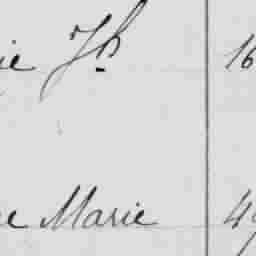 ie Jh 16
e Marie 49